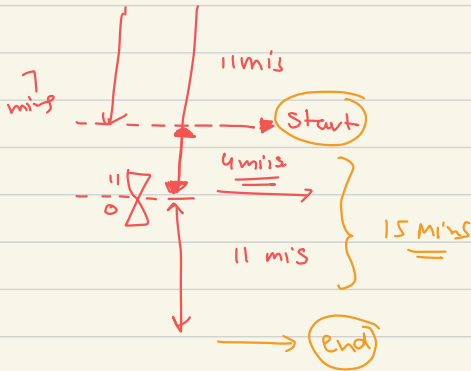 11mis
7
mins
start
4mins
11
0
15 Mins
11 mis
end